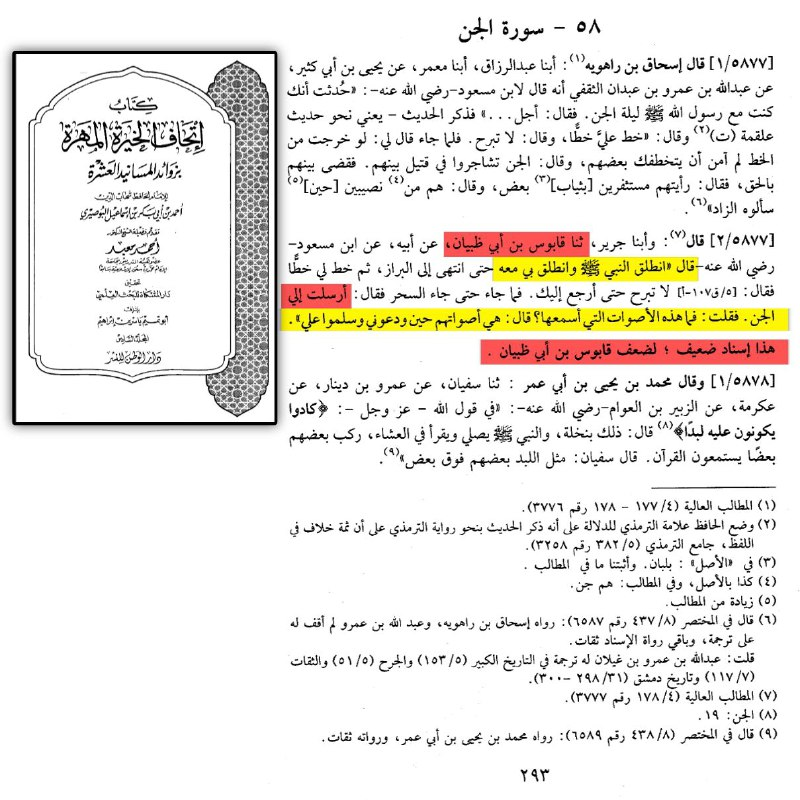 كتاب
إتحاف الخيرة المهرة
بزوائد المسانيد العشرة
للإمام الحافظ شهاب الدين
أحمد بن أبي بكر بن إسماعيل البوصيري
أحمد معبد
تحقيق
دار المشكاة للبحث العلمي
أبو تميم ياسر بن إبراهيم
المجلد السادس
دار الوطن للنشر
٥٨ - سورة الجن
[١/٥٨٧٧] قال إسحاق بن راهويه(١): أبنا عبدالرزاق، أبنا معمر، عن يحيى بن أبي كثير،
عن عبدالله بن عمرو بن عبدان الثقفي أنه قال لابن مسعود-رضي الله عنه-: «حُدثت أنك
كنت مع رسول الله ﷺ ليلة الجن. فقال: أجل...» فذكر الحديث - يعني نحو حديث
علقمة (ت)(٢) وقال: «خط عليَّ خطًّا، وقال: لا تبرح. فلما جاء قال لي: لو خرجت من
الخط لم آمن أن يتخطفك بعضهم، وقال: الجن تشاجروا في قتيل بينهم. فقضى بينهم
بالحق، فقال: رأيتهم مستثفرين [بثياب](٣) بعض، وقال: هم من(٤) نصيبين [حين](٥)
سألوه الزاد»(٦).
[٢/٥٨٧٧] قال(٧): وأبنا جرير، ثنا قابوس بن أبي ظبيان، عن أبيه، عن ابن مسعود-
رضي الله عنه-قال «انطلق النبي ﷺ وانطلق بي معه حتى انتهى إلى البراز، ثم خط لي خطًّا
فقال: [٥/ق١٠٧-أ] لا تبرح حتى أرجع إليك. فما جاء حتى جاء السحر فقال: أرسلت إلي
الجن. فقلت: فما هذه الأصوات التي أسمعها؟ قال: هي أصواتهم حين ودعوني وسلموا علي».
هذا إسناد ضعيف ؛ لضعف قابوس بن أبي ظبيان .
[١/٥٨٧٨] وقال محمد بن يحيى بن أبي عمر : ثنا سفيان، عن عمرو بن دينار، عن
عكرمة، عن الزبير بن العوام-رضي الله عنه-: «في قول الله - عز وجل -: ﴿كادوا
يكونون عليه لبدًا﴾(٨) قال: ذلك بنخلة، والنبي ﷺ يصلي ويقرأ في العشاء، ركب بعضهم
بعضًا يستمعون القرآن. قال سفيان: مثل اللبد بعضهم فوق بعض»(٩).
(١) المطالب العالية (٤/ ١٧٧ - ١٧٨ رقم ٣٧٧٦).
(٢) وضع الحافظ علامة الترمذي للدلالة على أنه ذكر الحديث بنحو رواية الترمذي على أن ثمة خلاف في
اللفظ، جامع الترمذي (٥/ ٣٨٢ رقم ٣٢٥٨).
(٣) في «الأصل» : بلبان. وأثبتنا ما في المطالب .
(٤) كذا بالأصل، وفي المطالب: هم جن.
(٥) زيادة من المطالب.
(٦) قال في المختصر (٨/ ٤٣٧ رقم ٦٥٨٧): رواه إسحاق بن راهويه، وعبد الله بن عمرو لم أقف له
على ترجمة، وباقي رواة الإسناد ثقات.
قلت: عبدالله بن عمرو بن غيلان له ترجمة في التاريخ الكبير (٥/ ١٥٣) والجرح (٥/ ٥١) والثقات
(٧/ ١١٧) وتاريخ دمشق (٣١/ ٢٩٨-٣٠٠).
(٧) المطالب العالية (٤/ ١٧٨ رقم ٣٧٧٧).
(٨) الجن: ١٩.
(٩) قال في المختصر (٨/ ٤٣٨ رقم ٦٥٨٩): رواه محمد بن يحيى بن أبي عمر، ورواته ثقات.
٢٩٣